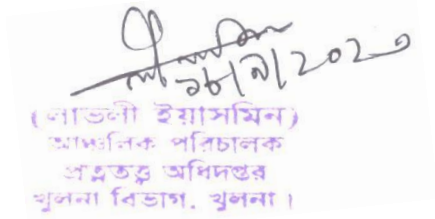 ১৮/৯/২০২৩
(লাভলী ইয়াসমিন)
আঞ্চলিক পরিচালক
প্রত্নতত্ত্ব অধিদপ্তর
খুলনা বিভাগ, খুলনা।